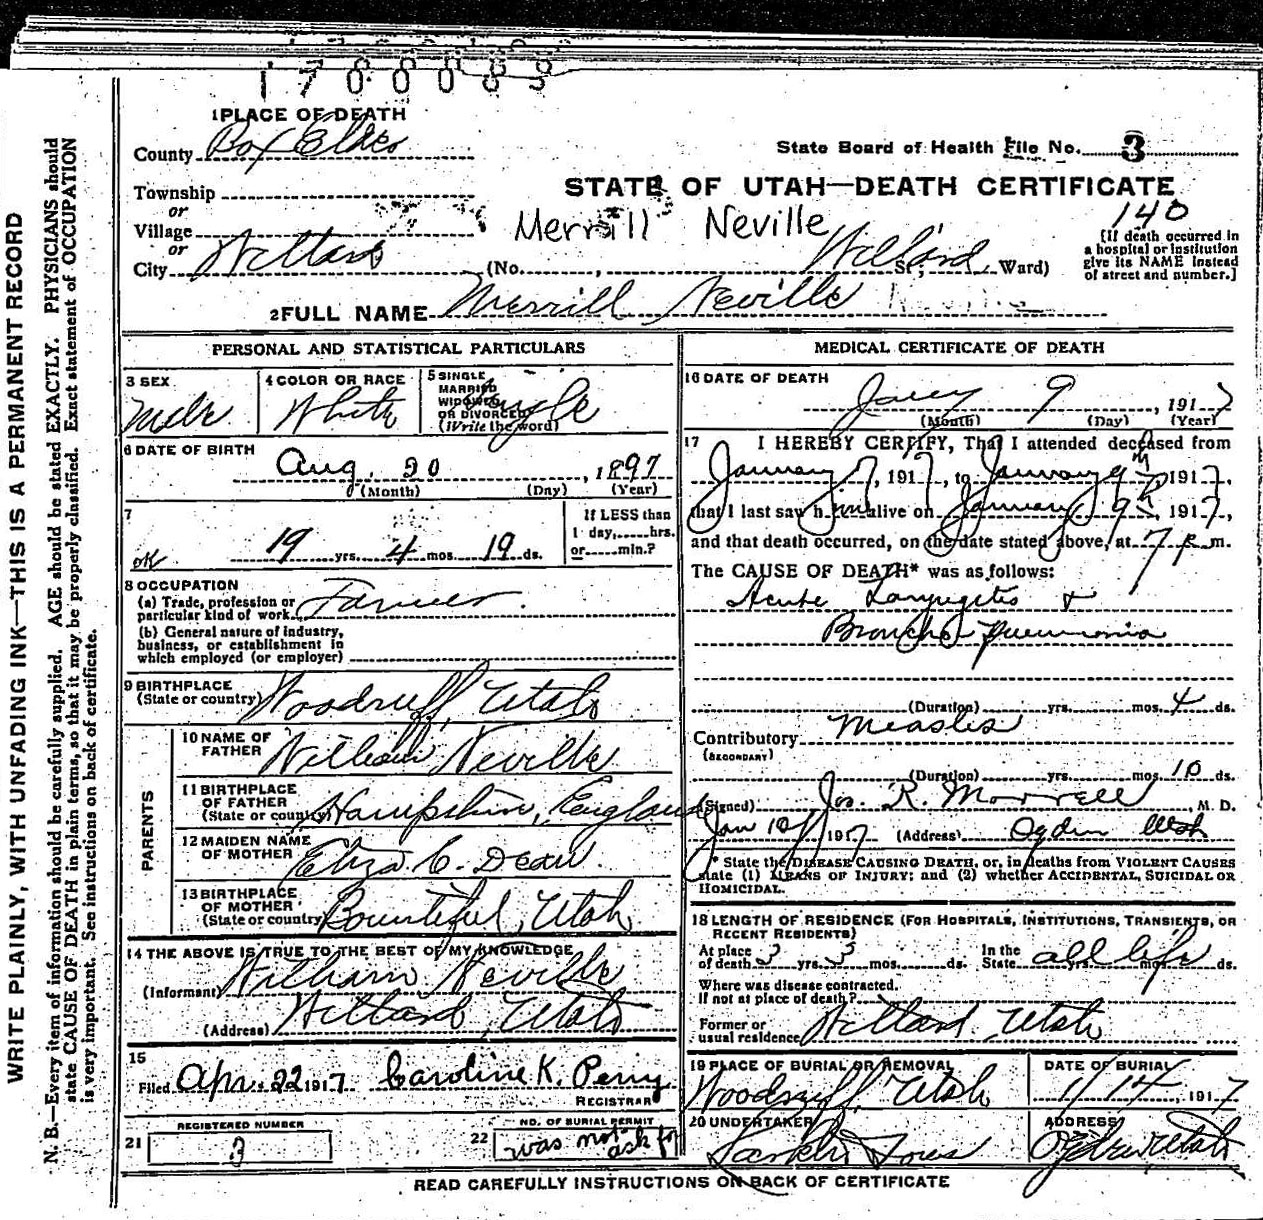 1700063
1 PLACE OF DEATH
County Box Elder
State Board of Health File No. 3
Township
STATE OF UTAH—DEATH CERTIFICATE
or
Village
Merrill Neville
140
or
City Willard (No. , Willard St.; Ward)
[If death occurred in
a hospital or institution
give its NAME instead
of street and number.]
2 FULL NAME Merrill Neville
PERSONAL AND STATISTICAL PARTICULARS
3 SEX
Male
4 COLOR OR RACE
White
5 SINGLE
MARRIED
WIDOWED
OR DIVORCED
(Write the word)
Single
6 DATE OF BIRTH
Aug. 20, 1897
(Month) (Day) (Year)
7
OK 19 yrs. 4 mos. 19 ds.
If LESS than
1 day, hrs.
or min.?
8 OCCUPATION
(a) Trade, profession or
particular kind of work Farmer
(b) General nature of industry,
business, or establishment in
which employed (or employer)
9 BIRTHPLACE
(State or country) Woodruff, Utah
PARENTS
10 NAME OF
FATHER William Neville
11 BIRTHPLACE
OF FATHER
(State or country) Hampshire, England
12 MAIDEN NAME
OF MOTHER Eliza C. Dean.
13 BIRTHPLACE
OF MOTHER
(State or country) Bountiful, Utah
14 THE ABOVE IS TRUE TO THE BEST OF MY KNOWLEDGE
(Informant) William Neville
(Address) Willard, Utah
15
Filed Apr. 22 1917 Caroline K. Perry
REGISTRAR
REGISTERED NUMBER
21 3
NO. OF BURIAL PERMIT
22 was not ask for
MEDICAL CERTIFICATE OF DEATH
16 DATE OF DEATH
Jany 9, 1917
(Month) (Day) (Year)
17 I HEREBY CERTIFY, That I attended deceased from
January 7, 1917, to January 9th 1917,
that I last saw him alive on January 9th, 1917,
and that death occurred, on the date stated above, at 7 P m.
The CAUSE OF DEATH* was as follows:
Acute Laryngitis &
Broncho pneumonia
(Duration) yrs. mos. 4 ds.
Contributory Measles
(SECONDARY)
(Duration) yrs. mos. 10 ds.
(Signed) Jos. R. Morrell, M. D.
Jan 10, 1917 (Address) Ogden Utah
* State the DISEASE CAUSING DEATH, or, in deaths from VIOLENT CAUSES
state (1) MEANS OF INJURY; and (2) whether ACCIDENTAL, SUICIDAL OR
HOMICIDAL.
18 LENGTH OF RESIDENCE (FOR HOSPITALS, INSTITUTIONS, TRANSIENTS, OR
RECENT RESIDENTS)
At place
of death 3 yrs. 3 mos. ds.
In the
State all life yrs. mos. ds.
Where was disease contracted.
If not at place of death?
Former or
usual residence Willard. Utah
19 PLACE OF BURIAL OR REMOVAL
Woodruff, Utah
DATE OF BURIAL
1/14, 1917
20 UNDERTAKER
ADDRESS
Ogden Utah
READ CAREFULLY INSTRUCTIONS ON BACK OF CERTIFICATE
WRITE PLAINLY, WITH UNFADING INK—THIS IS A PERMANENT RECORD
N. B.—Every item of information should be carefully supplied. AGE should be stated EXACTLY. PHYSICIANS should
state CAUSE OF DEATH in plain terms, so that it may be properly classified. Exact statement of OCCUPATION
is very important. See instructions on back of certificate.